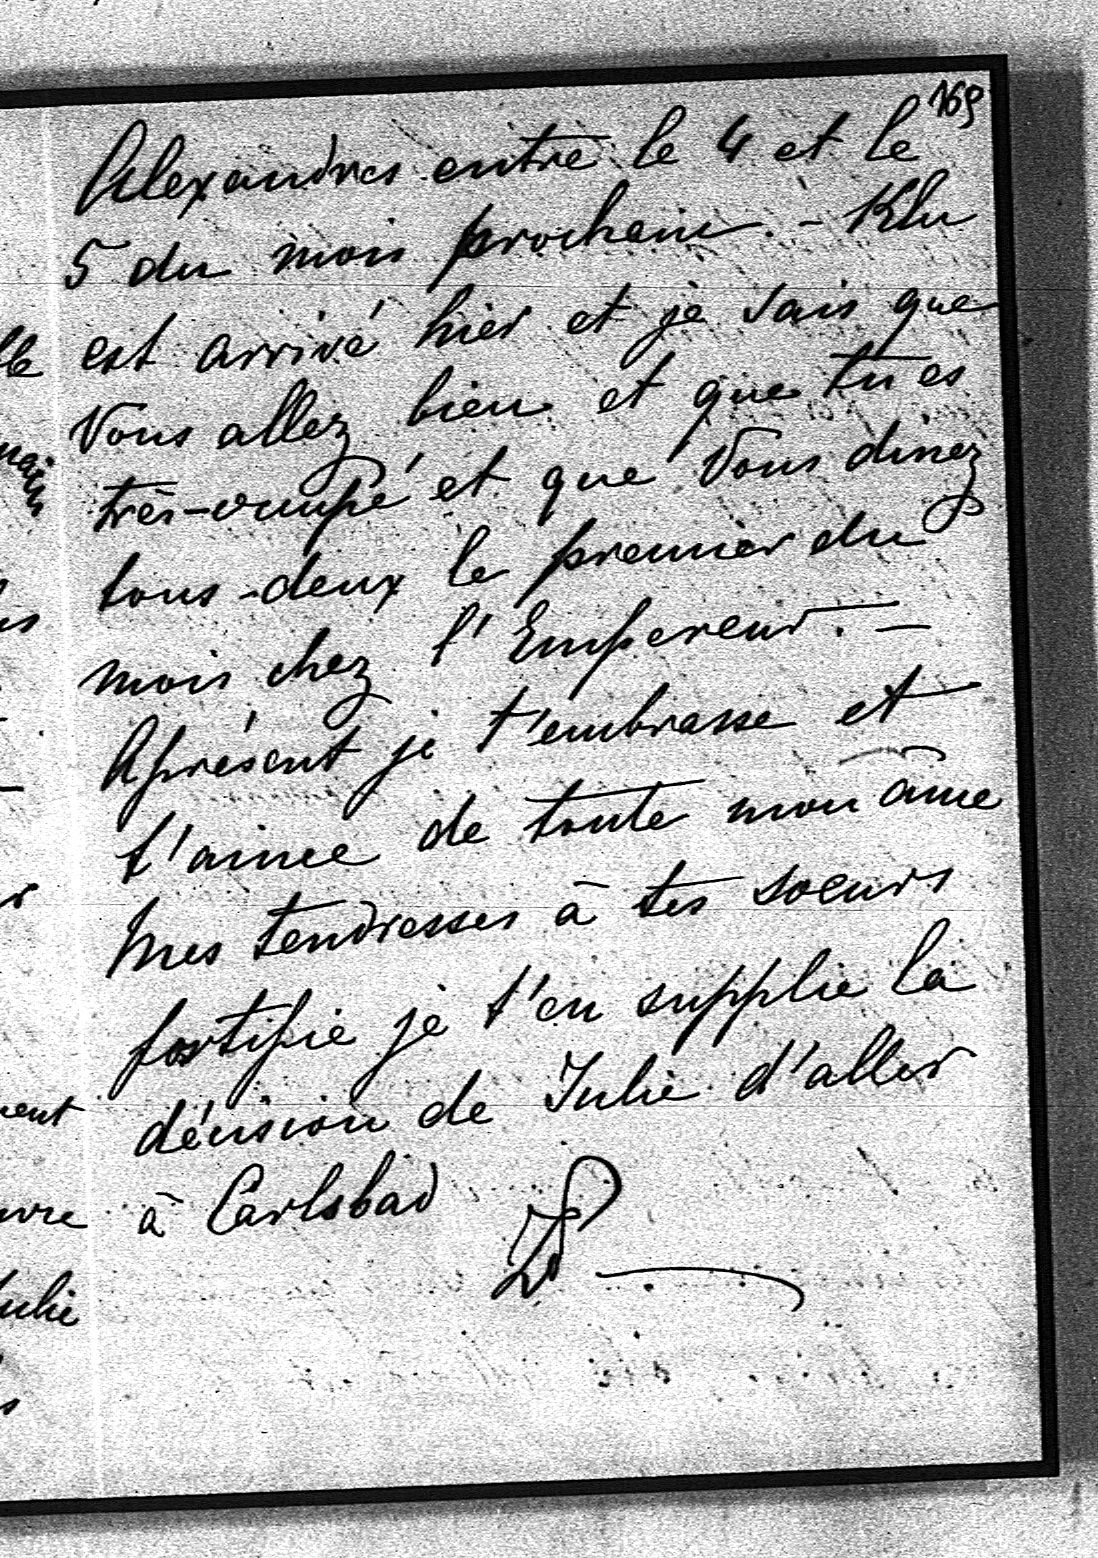 169
Alexandres entre le 4 et le
5 du mois prochain. - Klu
est arrivé hier et je sais que
Vous allez bien et que tu es
très-occupé et que Vous dinez
tous-deux le premier du
mois chez l'Empereur. —
Aprésent je t'embrasse et
t'aime de toute mon âme
Mes tendresses à tes soeurs
fortifie je t'en supplie la
décision de Julie d'aller
à Carlsbad